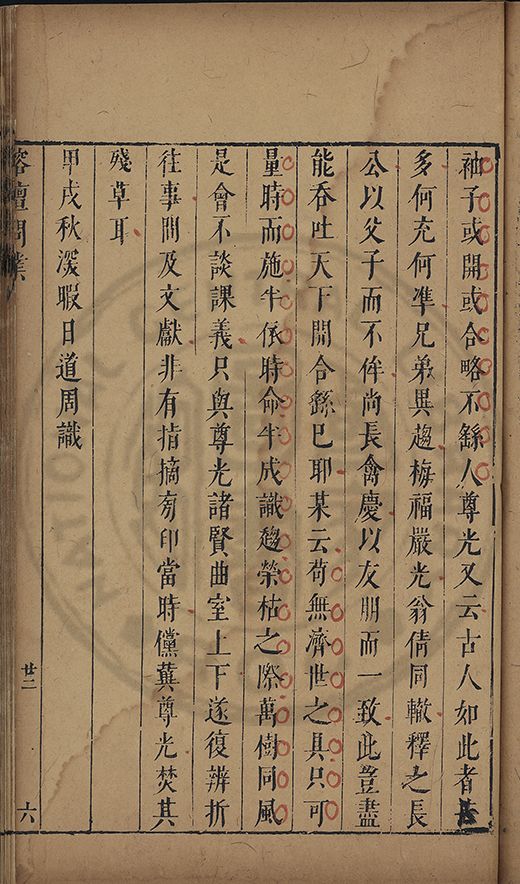 袖子或開或合略不繇人尊光又云古人如此者甚
多何充何準兄弟異趨梅福嚴光翁倩同轍釋之長
公以父子而不侔尚長禽慶以友朋而一致此豈盡
能吞吐天下開合繇巳耶某云苟無濟世之具只可
量時而施半依時命半成識趨榮枯之際萬樹同風
是會不談課義只與尊光諸賢曲室上下遂復辨折
往事間及文獻非有指摘旁印當時儻冀尊光焚其
殘草耳
甲戌秋深暇日道周識
榕壇問業
廿二
六